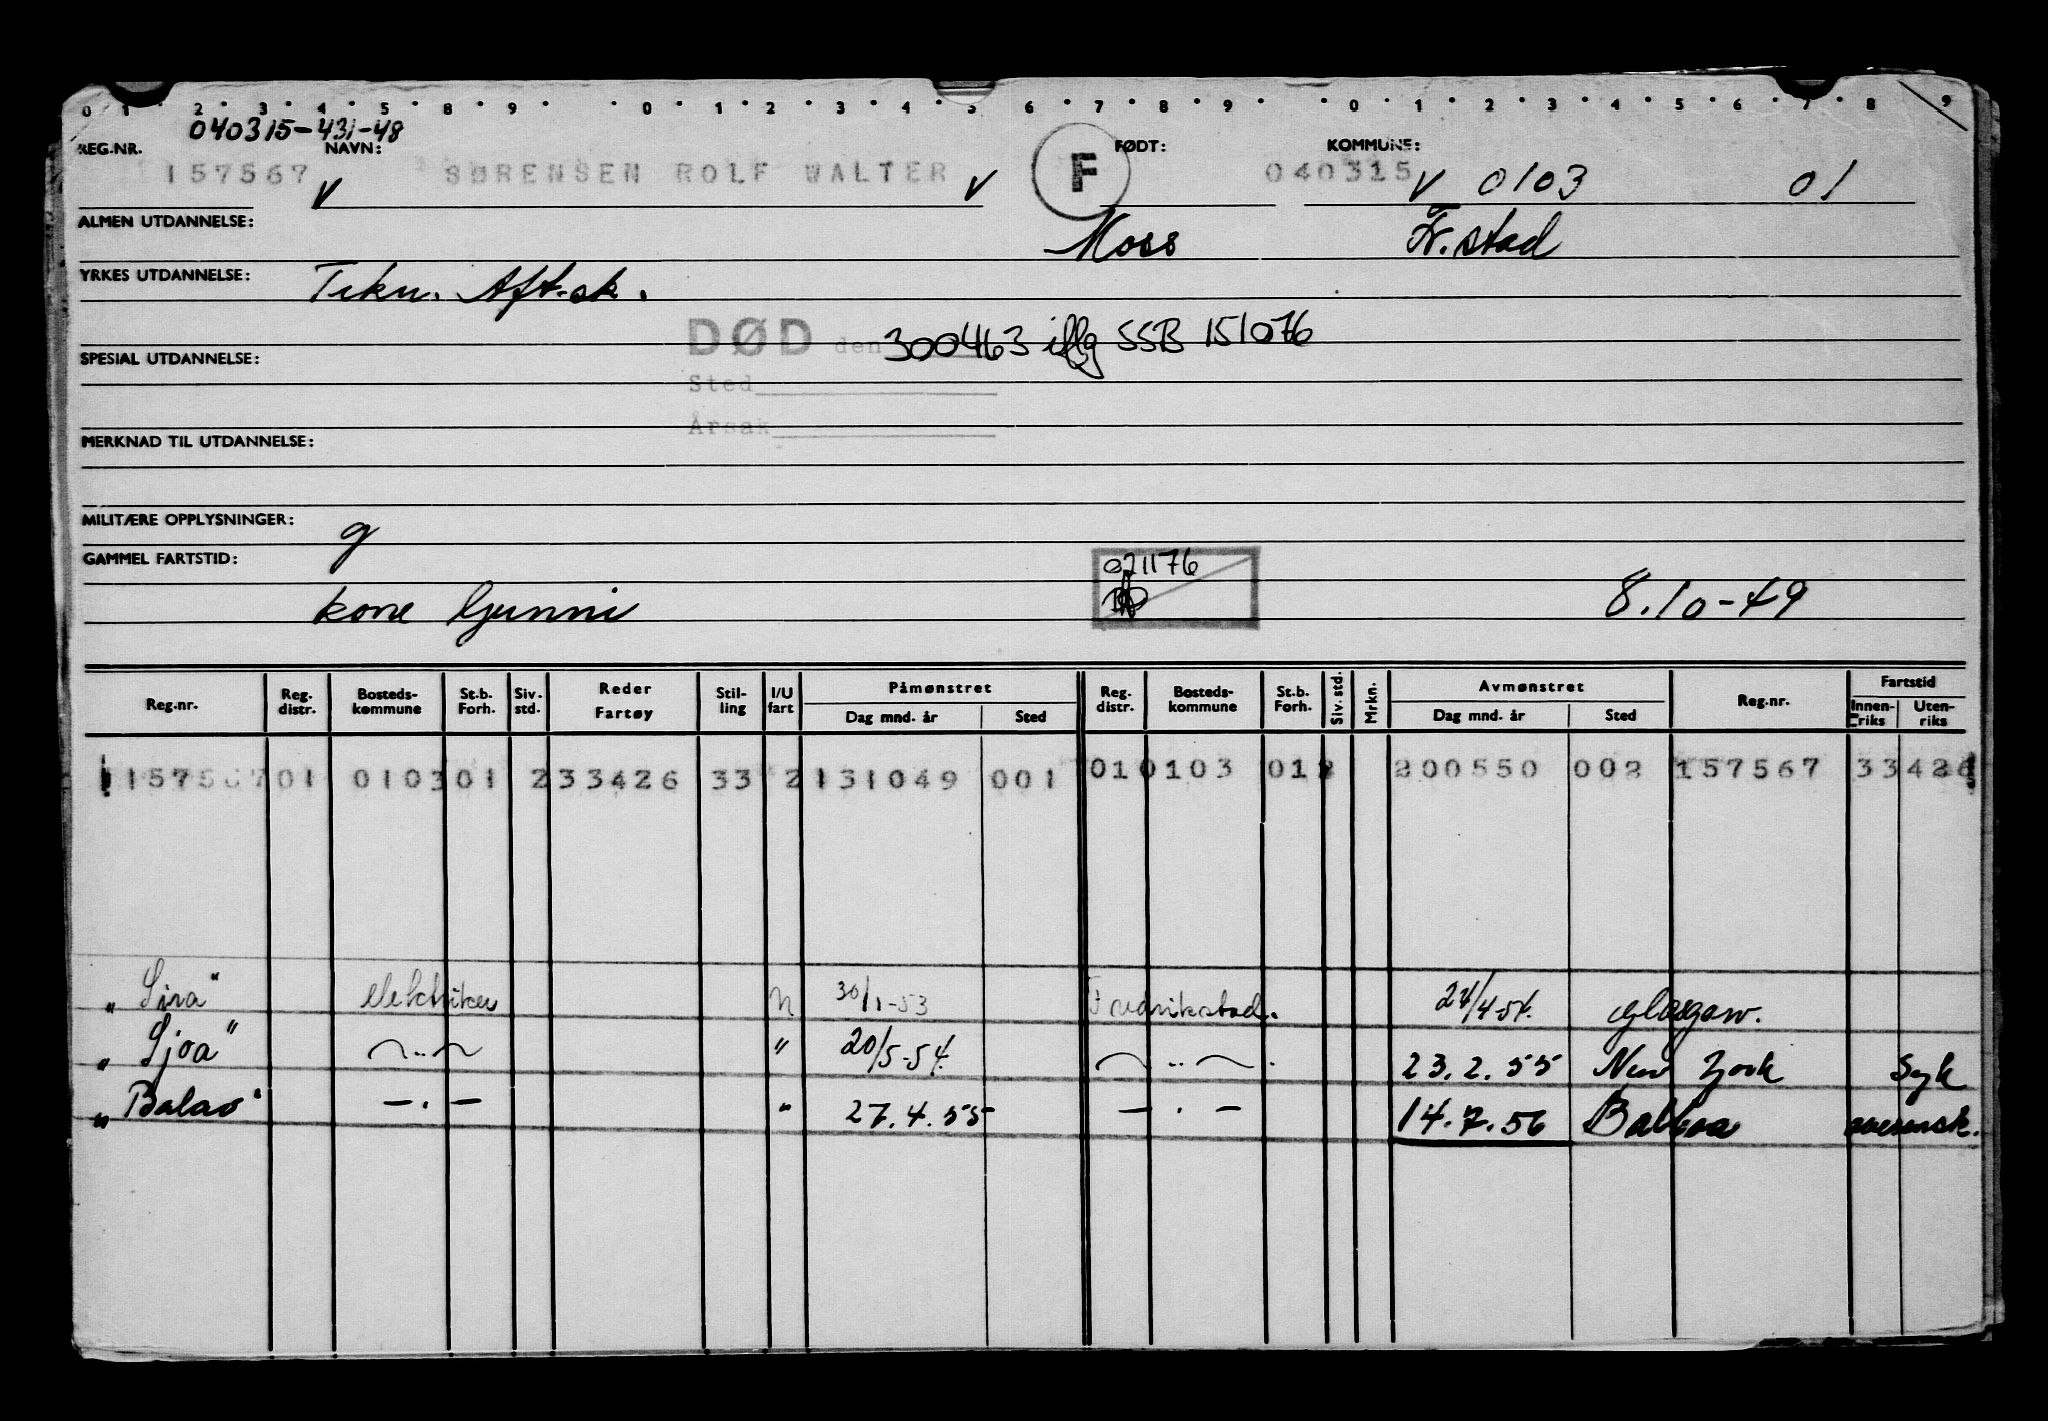 0 1 2 3 4 5 8 9 0 1 2 3 4 5 6 7 8 9 0 1 2 3 4 5 6 7 8 9
040315-431-48
REG.NR. NAVN: FØDT: KOMMUNE:
157567 V SØRENSEN ROLF WALTER V F 040315 V 0103 01
ALMEN UTDANNELSE: Moss Fr.stad
YRKES UTDANNELSE: Tekn. Aft.sk.
DØD den 300463 iflg SSB 151076
SPESIAL UTDANNELSE:
Sted
Årsak
MERKNAD TIL UTDANNELSE:
MILITÆRE OPPLYSNINGER: g
GAMMEL FARTSTID: 021176
kone Gunni 8.10-49
Reg.nr. Reg. distr. Bosteds- kommune St.b. Forh. Siv. std. Reder Fartøy Stil- ling I/U fart Påmønstret Dag mnd. år Sted Reg. distr. Bosteds- kommune St.b. Forh. Siv. std. Mrkn. Avmønstret Dag mnd. år Sted Reg.nr. Fartstid Innen- riks Uten- riks
157567 01 0103 01 2 33426 33 2 131049 001 01 0103 01 2 200550 002 157567 33426
"Sira" elektriker U 30/1-53 Fredrikstad. 24/4-54. Glasgow.
"Sjoa" " 20/5-54. 23.2.55 New York Syk
"Balao" " 27.4.55 14.7.56 Balboa